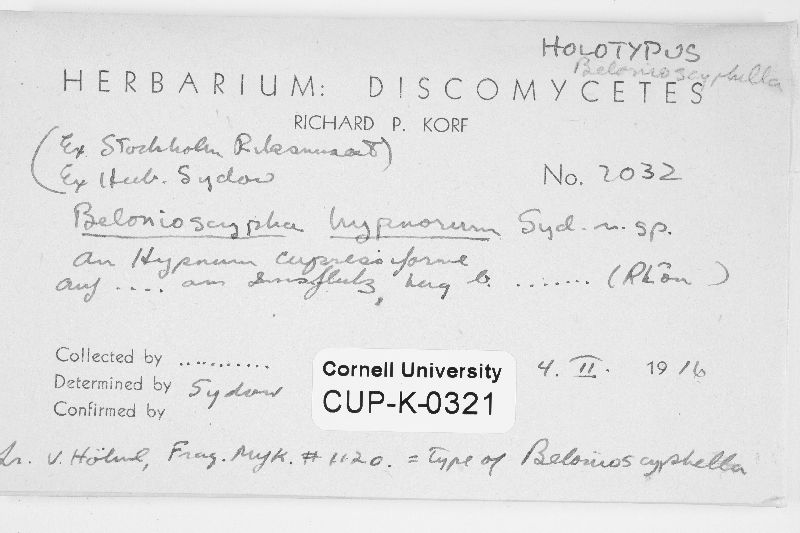 HOLOTYPUS
Belonioscyphella
HERBARIUM: DISCOMYCETES
RICHARD P. KORF
(Ex Stockholm Riksmuseet)
Ex Herb. Sydow
No. 2032
Belonioscypha hypnorum Syd. n. sp.
an Hypnum cupressiforme
auf .... am , b. ....... (Rhön)
Collected by ............
Determined by Sydow
Confirmed by
4. II. 1916
Cornell University
CUP-K-0321
v. Höhnel, Frag. Myk. # 1120. = type of Belonioscyphella